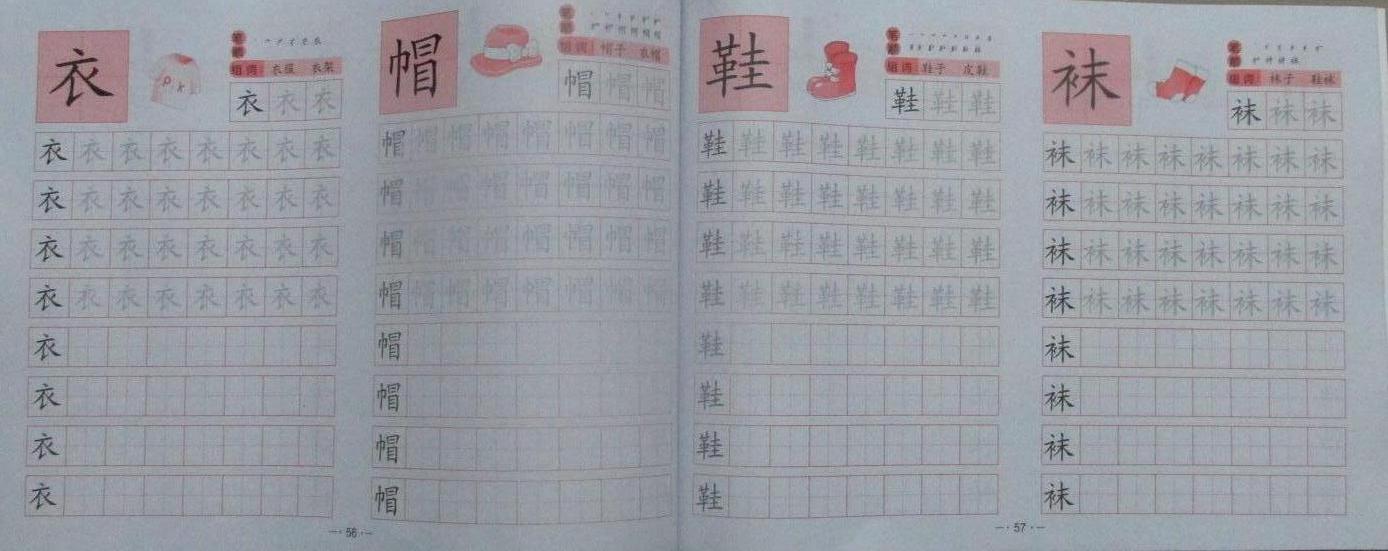 衣
笔顺
组词 衣服 衣架
衣 衣 衣
衣 衣 衣 衣 衣 衣 衣 衣
衣 衣 衣 衣 衣 衣 衣 衣
衣 衣 衣 衣 衣 衣 衣 衣
衣 衣 衣 衣 衣 衣 衣 衣
衣
衣
衣
衣
帽
笔顺
组词 帽子 衣帽
帽 帽 帽
帽 帽 帽 帽 帽 帽 帽 帽
帽 帽 帽 帽 帽 帽 帽 帽
帽 帽 帽 帽 帽 帽 帽 帽
帽 帽 帽 帽 帽 帽 帽 帽
帽
帽
帽
帽
56
鞋
笔顺
组词 鞋子 皮鞋
鞋 鞋 鞋
鞋 鞋 鞋 鞋 鞋 鞋 鞋 鞋
鞋 鞋 鞋 鞋 鞋 鞋 鞋 鞋
鞋 鞋 鞋 鞋 鞋 鞋 鞋 鞋
鞋 鞋 鞋 鞋 鞋 鞋 鞋 鞋
鞋
鞋
鞋
鞋
袜
笔顺
组词 袜子 鞋袜
袜 袜 袜
袜 袜 袜 袜 袜 袜 袜 袜
袜 袜 袜 袜 袜 袜 袜 袜
袜 袜 袜 袜 袜 袜 袜 袜
袜 袜 袜 袜 袜 袜 袜 袜
袜
袜
袜
袜
57